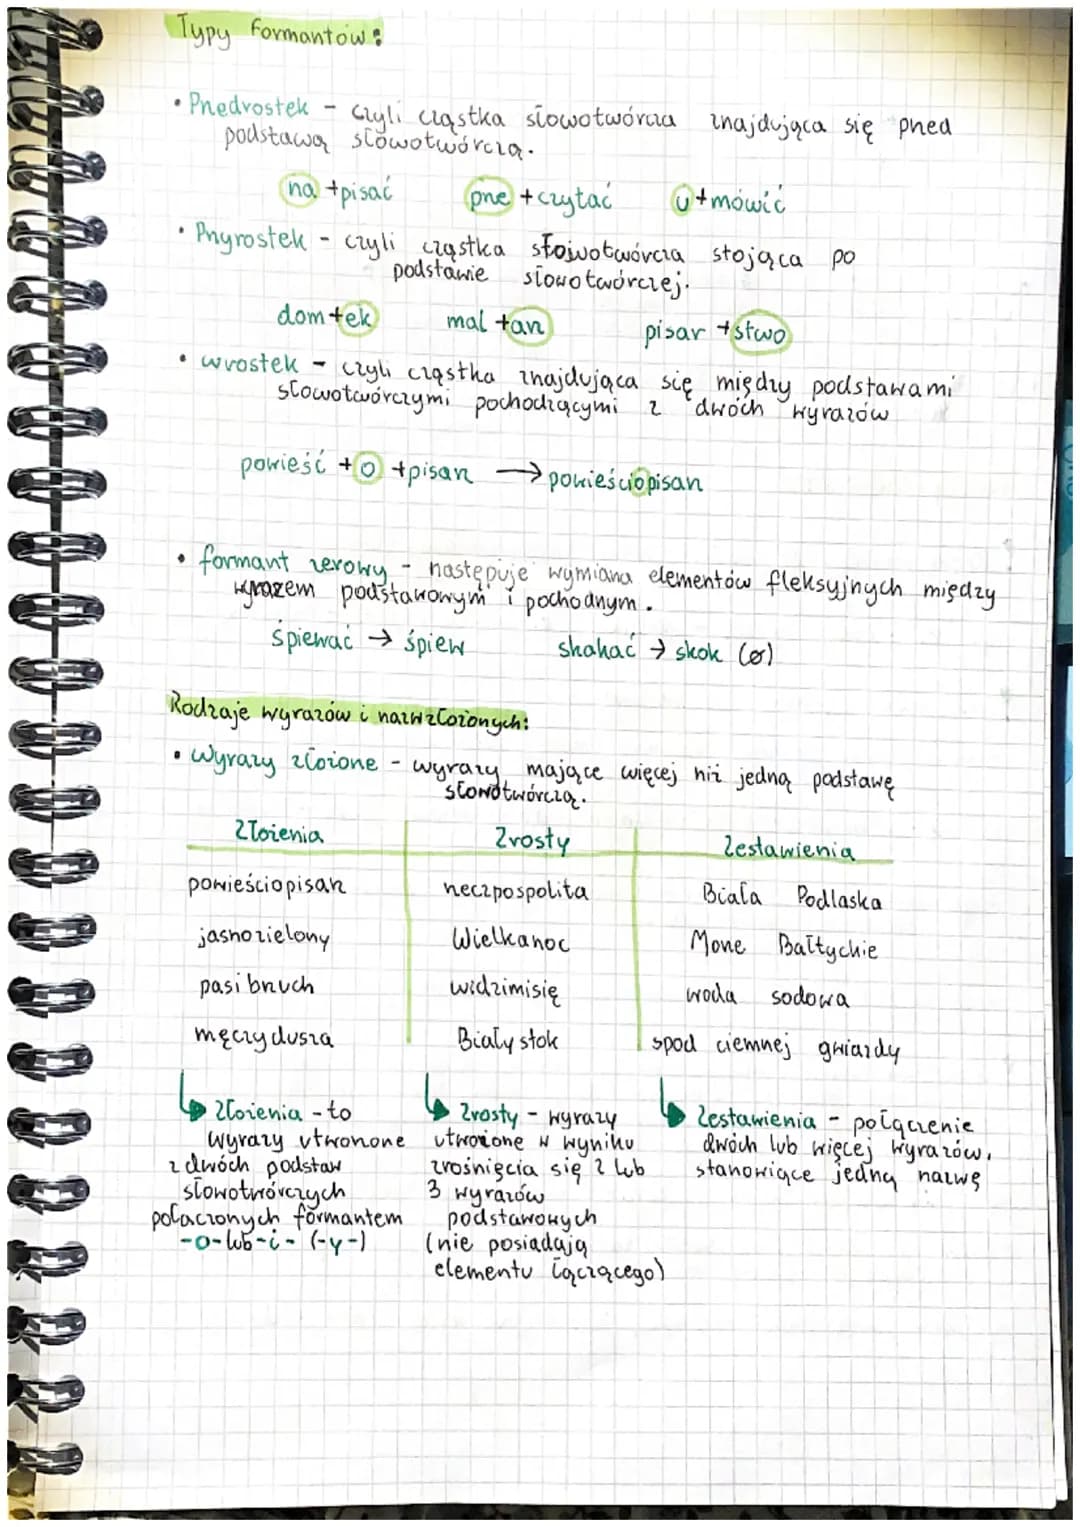 Typy formantów:
• Przedrostek - czyli cząstka słowotwórcza znajdująca się przed
podstawą słowotwórczą.
na +pisać prze +czytać u+mówić
• Przyrostek - czyli cząstka słowotwórcza stojąca po
podstawie słowotwórczej.
dom+ek mal +arz pisar +stwo
• wrostek - czyli cząstka znajdująca się między podstawami
słowotwórczymi pochodzącymi z dwóch wyrazów
powieść + o +pisarz → powieściopisarz
• formant zerowy - następuje wymiana elementów fleksyjnych między
wyrazem podstawowym i pochodnym.
śpiewać → śpiew skakać → skok (ø)
Rodzaje wyrazów i nazw złożonych:
• Wyrazy złożone - wyrazy mające więcej niż jedną podstawę
słowotwórczą.
Złożenia Zrosty Zestawienia
powieściopisarz rzeczpospolita Biała Podlaska
jasnozielony Wielkanoc Morze Bałtyckie
pasibrzuch widzimisię woda sodowa
męczydusza Białystok spod ciemnej gwiazdy
Złożenia - to
wyrazy utworzone
z dwóch podstaw
słowotwórczych
połaczonych formantem
-o- lub -i- (-y-)
Zrosty - wyrazy
utworzone w wyniku
zrośnięcia się 2 lub
3 wyrazów
podstawowych
(nie posiadają
elementu łączącego)
Zestawienia - połączenie
dwóch lub więcej wyrazów,
stanowiące jedną nazwę